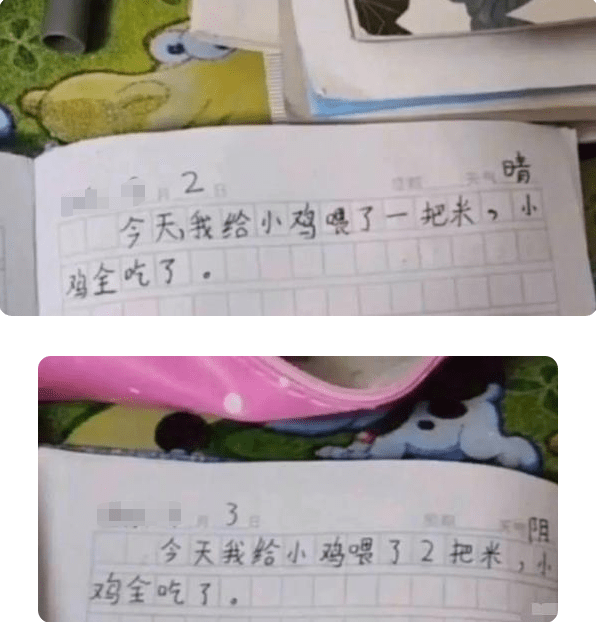 月 2 日 星期 天气 晴
今天,我给小鸡喂了一把米,小
鸡全吃了。
月 3 日 星期 天气 阴
今天我给小鸡喂了2把米,小
鸡全吃了。